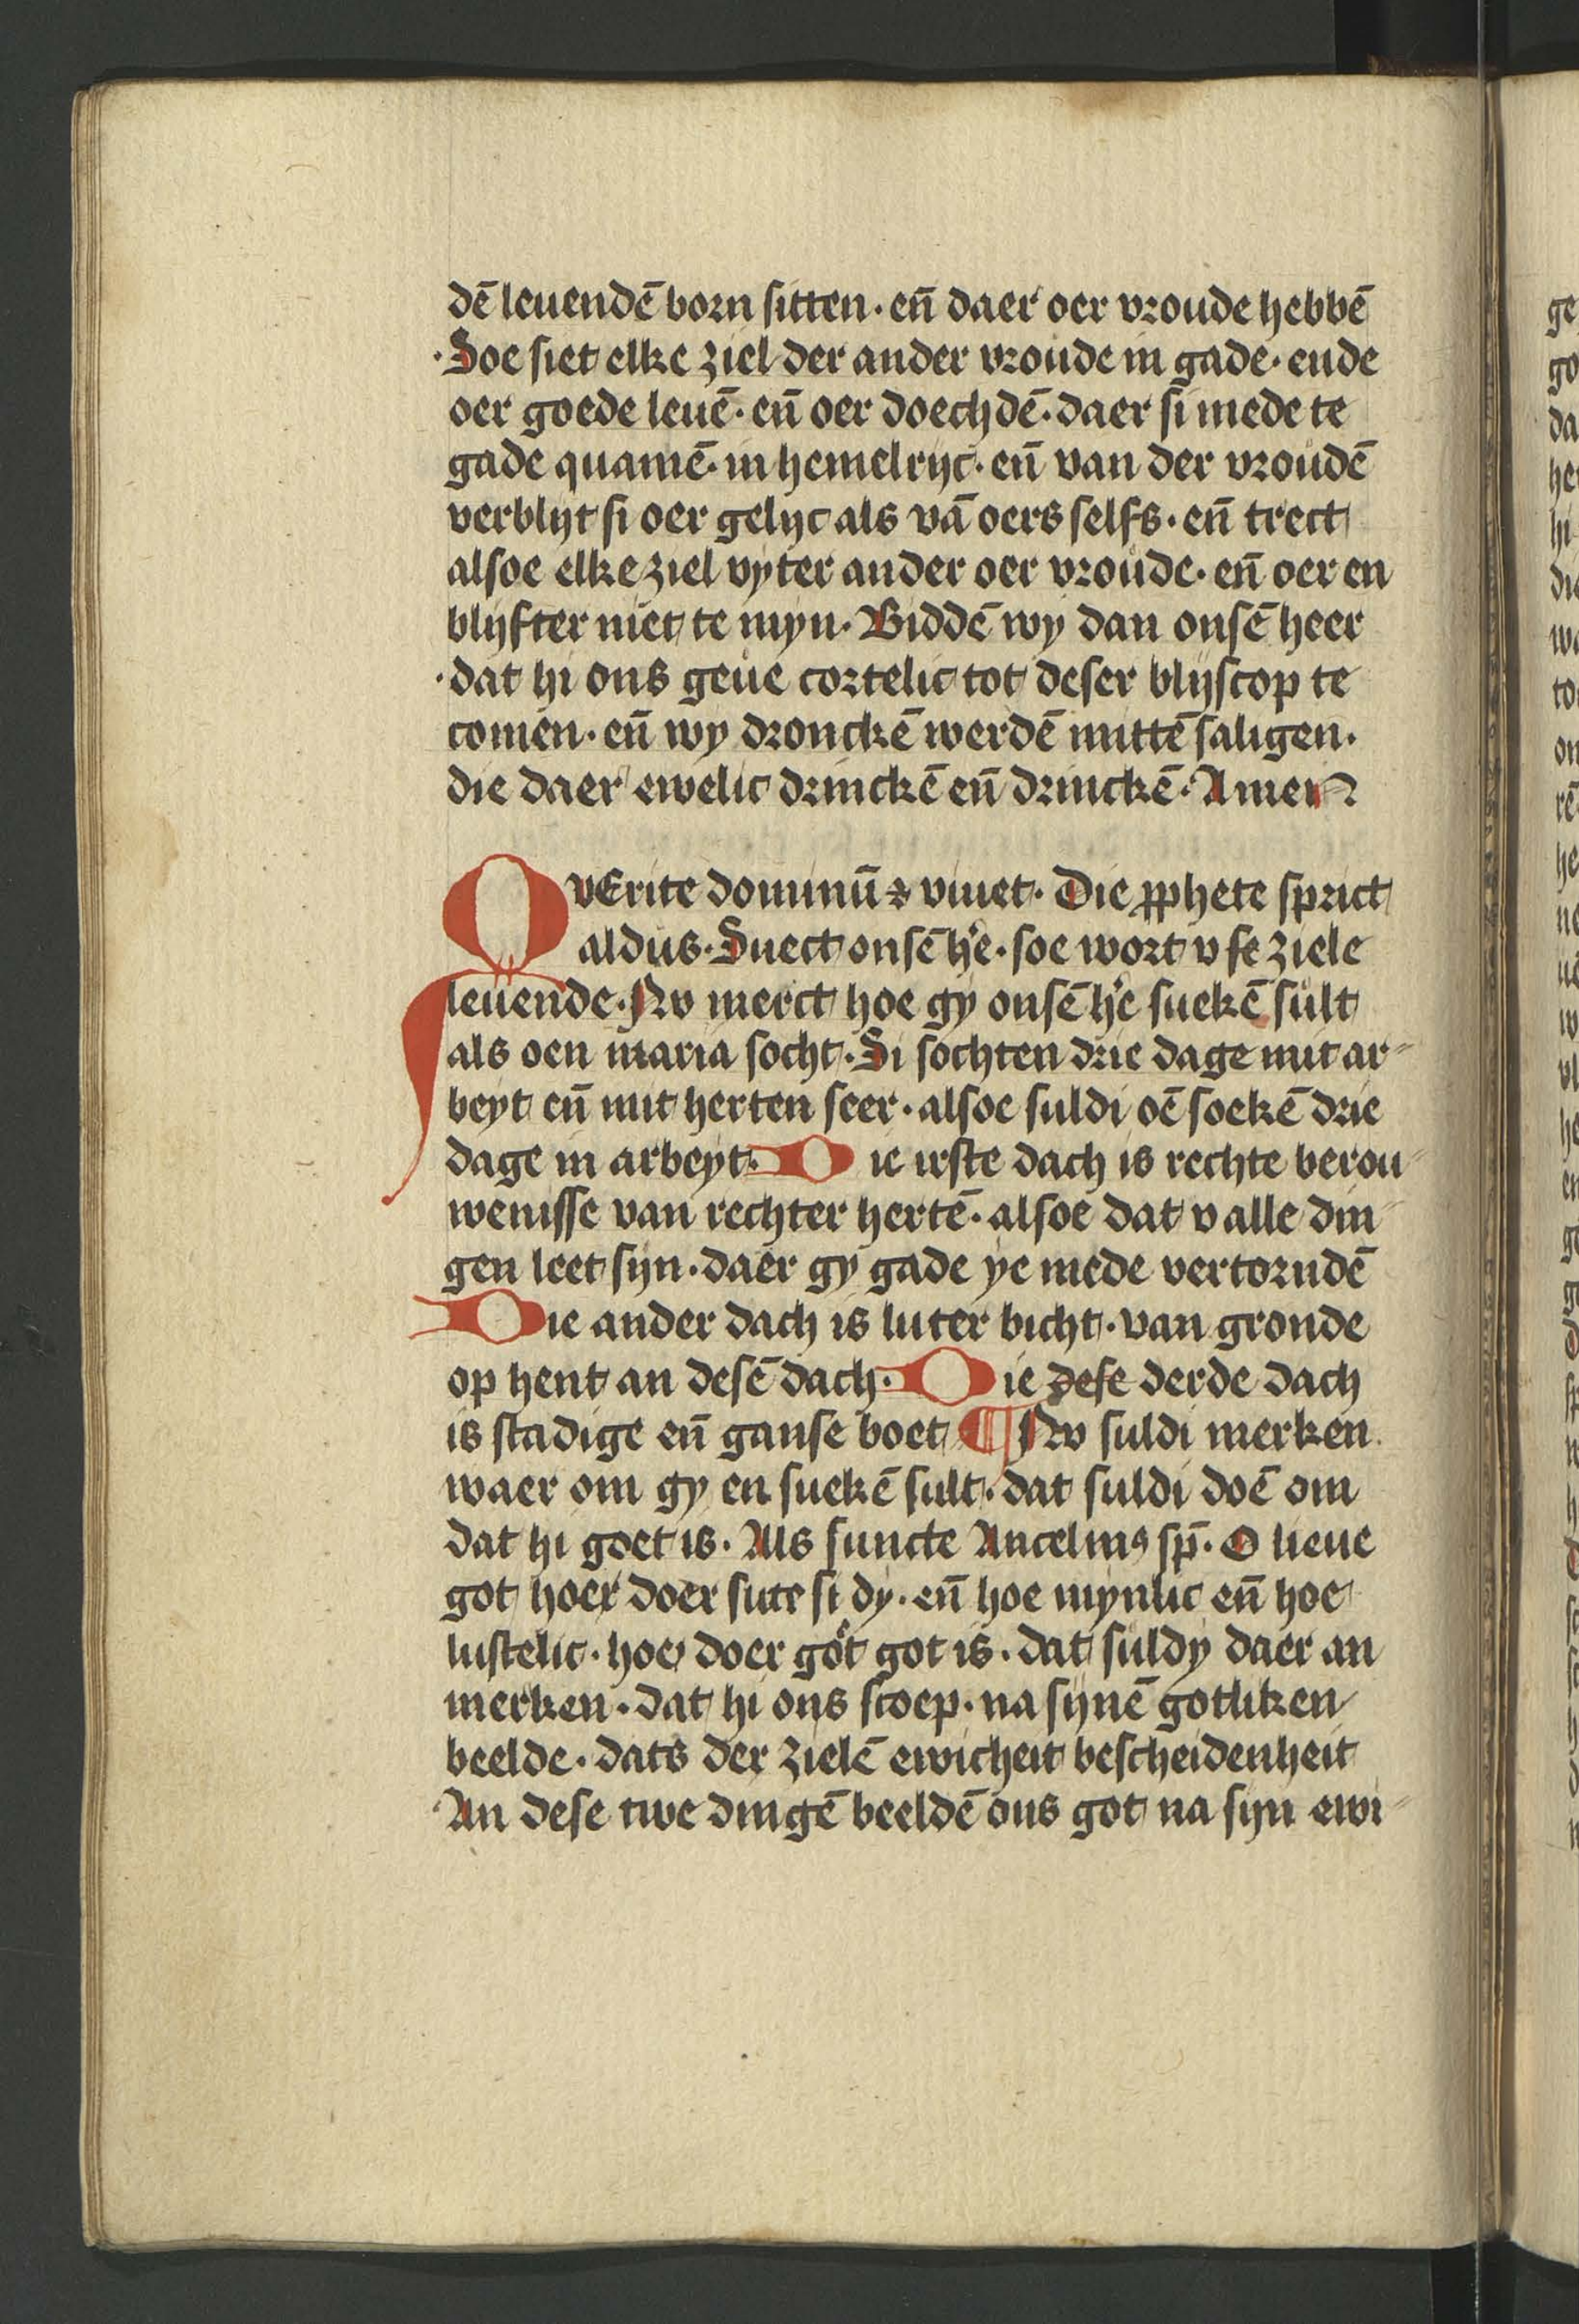 dē leuendē born sitten · en̄ daer oer vroude hebbē
· Soe siet elke ziel der ander vroude in gade · ende
oer goede leuē · en̄ oer doechdē · daer si mede te
gade quamē · in hemelrijc · en̄ van der vroudē
verblijt si oer gelijc als vā oers selfs · en̄ trect
alsoe elke ziel vyter ander oer vroude · en̄ oer en
blijfter niet te myn · Biddē wy dan onsē heer
· dat hi ons geue cortelic tot deser blijscop te
comen · en̄ wy dronckē werdē mittē saligen ·
die daer ewelic drinckē en̄ drinckē · Amen
QvErite dominū ⁊ viuet · Die ꝓphete sprict
aldus · Suect onsē h'e · soe wort v se ziele
leuende · Nv merct hoe gy onsē h'e suekē sult
als oen maria socht · Si sochten drie dage mit ar-
beyt en̄ mit herten seer · alsoe suldi oē soekē drie
dage in arbeyt · Die irste dach is rechte berou-
wenisse van rechter hertē · alsoe dat v alle din-
gen leet sijn · daer gy gade ye mede vertorndē
Die ander dach is luter bicht · van gronde
op hent an desē dach · Die dese derde dach
is stadige en̄ ganse boet ¶ Nv suldi merken
waer om gy en suekē sult · dat suldi doē om
dat hi goet is · Als suncte Ancelmꝰ sp̄ · O lieue
got hoer doer sute si dy · en̄ hoe mynlic en̄ hoe
lustelic · hoe doer got got is · dat suldy daer an
merken · dat hi ons scoep · na sijnē gotliken
beelde · dats der zielē ewicheit bescheidenheit
An dese twe dingē beeldē ons got na sijn ewi-